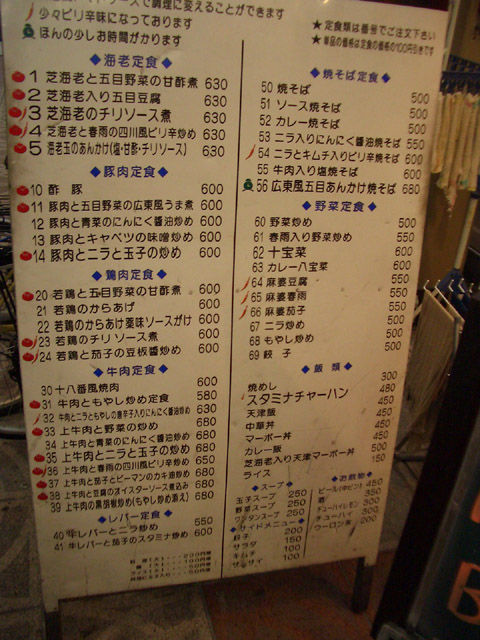 ソースで調理に変えることができます
少々ピリ辛味になっております
ほんの少しお時間がかります
◆海老定食◆
1 芝海老と五目野菜の甘酢煮 630
2 芝海老入り五目豆腐 630
3 芝海老のチリソース煮 630
4 芝海老と春雨の四川風ピリ辛炒め 630
5 海老玉のあんかけ(塩・甘酢・チリソース) 630
◆豚肉定食◆
10 酢豚 600
11 豚肉と五目野菜の広東風うま煮 600
12 豚肉と青菜のにんにく醤油炒め 600
13 豚肉とキャベツの味噌炒め 600
14 豚肉とニラと玉子の炒め 600
◆鶏肉定食◆
20 若鶏と五目野菜の甘酢煮 600
21 若鶏のからあげ 600
22 若鶏のからあげ薬味ソースがけ 600
23 若鶏のチリソース煮 600
24 若鶏と茄子の豆板醤炒め 600
◆牛肉定食◆
30 十八番風焼肉 600
31 牛肉ともやし炒め定食 580
32 牛肉とニラともやしの唐辛子入りにんにく醤油炒め 630
33 上牛肉と野菜の炒め 680
34 上牛肉と青菜のにんにく醤油炒め 680
35 上牛肉とニラと玉子の炒め 680
36 上牛肉と春雨の四川風ピリ辛炒め 650
37 上牛肉と茄子とピーマンのカキ油炒め 680
38 上牛肉と豆腐のオイスターソース煮込み 680
39 上牛肉の黒胡椒炒め(もやし炒め添え) 680
◆レバー定食◆
40 牛レバーとニラ炒め 550
41 牛レバーと茄子のスタミナ炒め 600
★定食類は番号でご注文下さい
★単品の価格は定食の価格の100円引きです
◆焼そば定食◆
50 焼そば 500
51 ソース焼そば 500
52 カレー焼そば 500
53 ニラ入りにんにく醤油焼そば 550
54 ニラとキムチ入りピリ辛焼そば 550
55 牛肉入り塩焼そば 600
56 広東風五目あんかけ焼そば 680
◆野菜定食◆
60 野菜炒め 500
61 春雨入り野菜炒め 550
62 十宝菜 600
63 カレー八宝菜 600
64 麻婆豆腐 550
65 麻婆春雨 550
66 麻婆茄子 550
67 ニラ炒め 500
68 もやし炒め 500
69 餃子 500
◆飯類◆
焼めし 300
スタミナチャーハン 480
天津飯 450
中華丼 450
マーボー丼 450
カレー飯 450
芝海老入り天津マーボー丼 500
ライス 150
◆スープ◆
玉子スープ 250
野菜スープ 250
ワンタンスープ 250
◆サイドメニュー◆
餃子 200
サラダ 150
キムチ 100
ザーサイ 100
ビール(中ビン) 450
酒 350
チューハイレモン 300
チューハイ 300
ウーロン茶 200